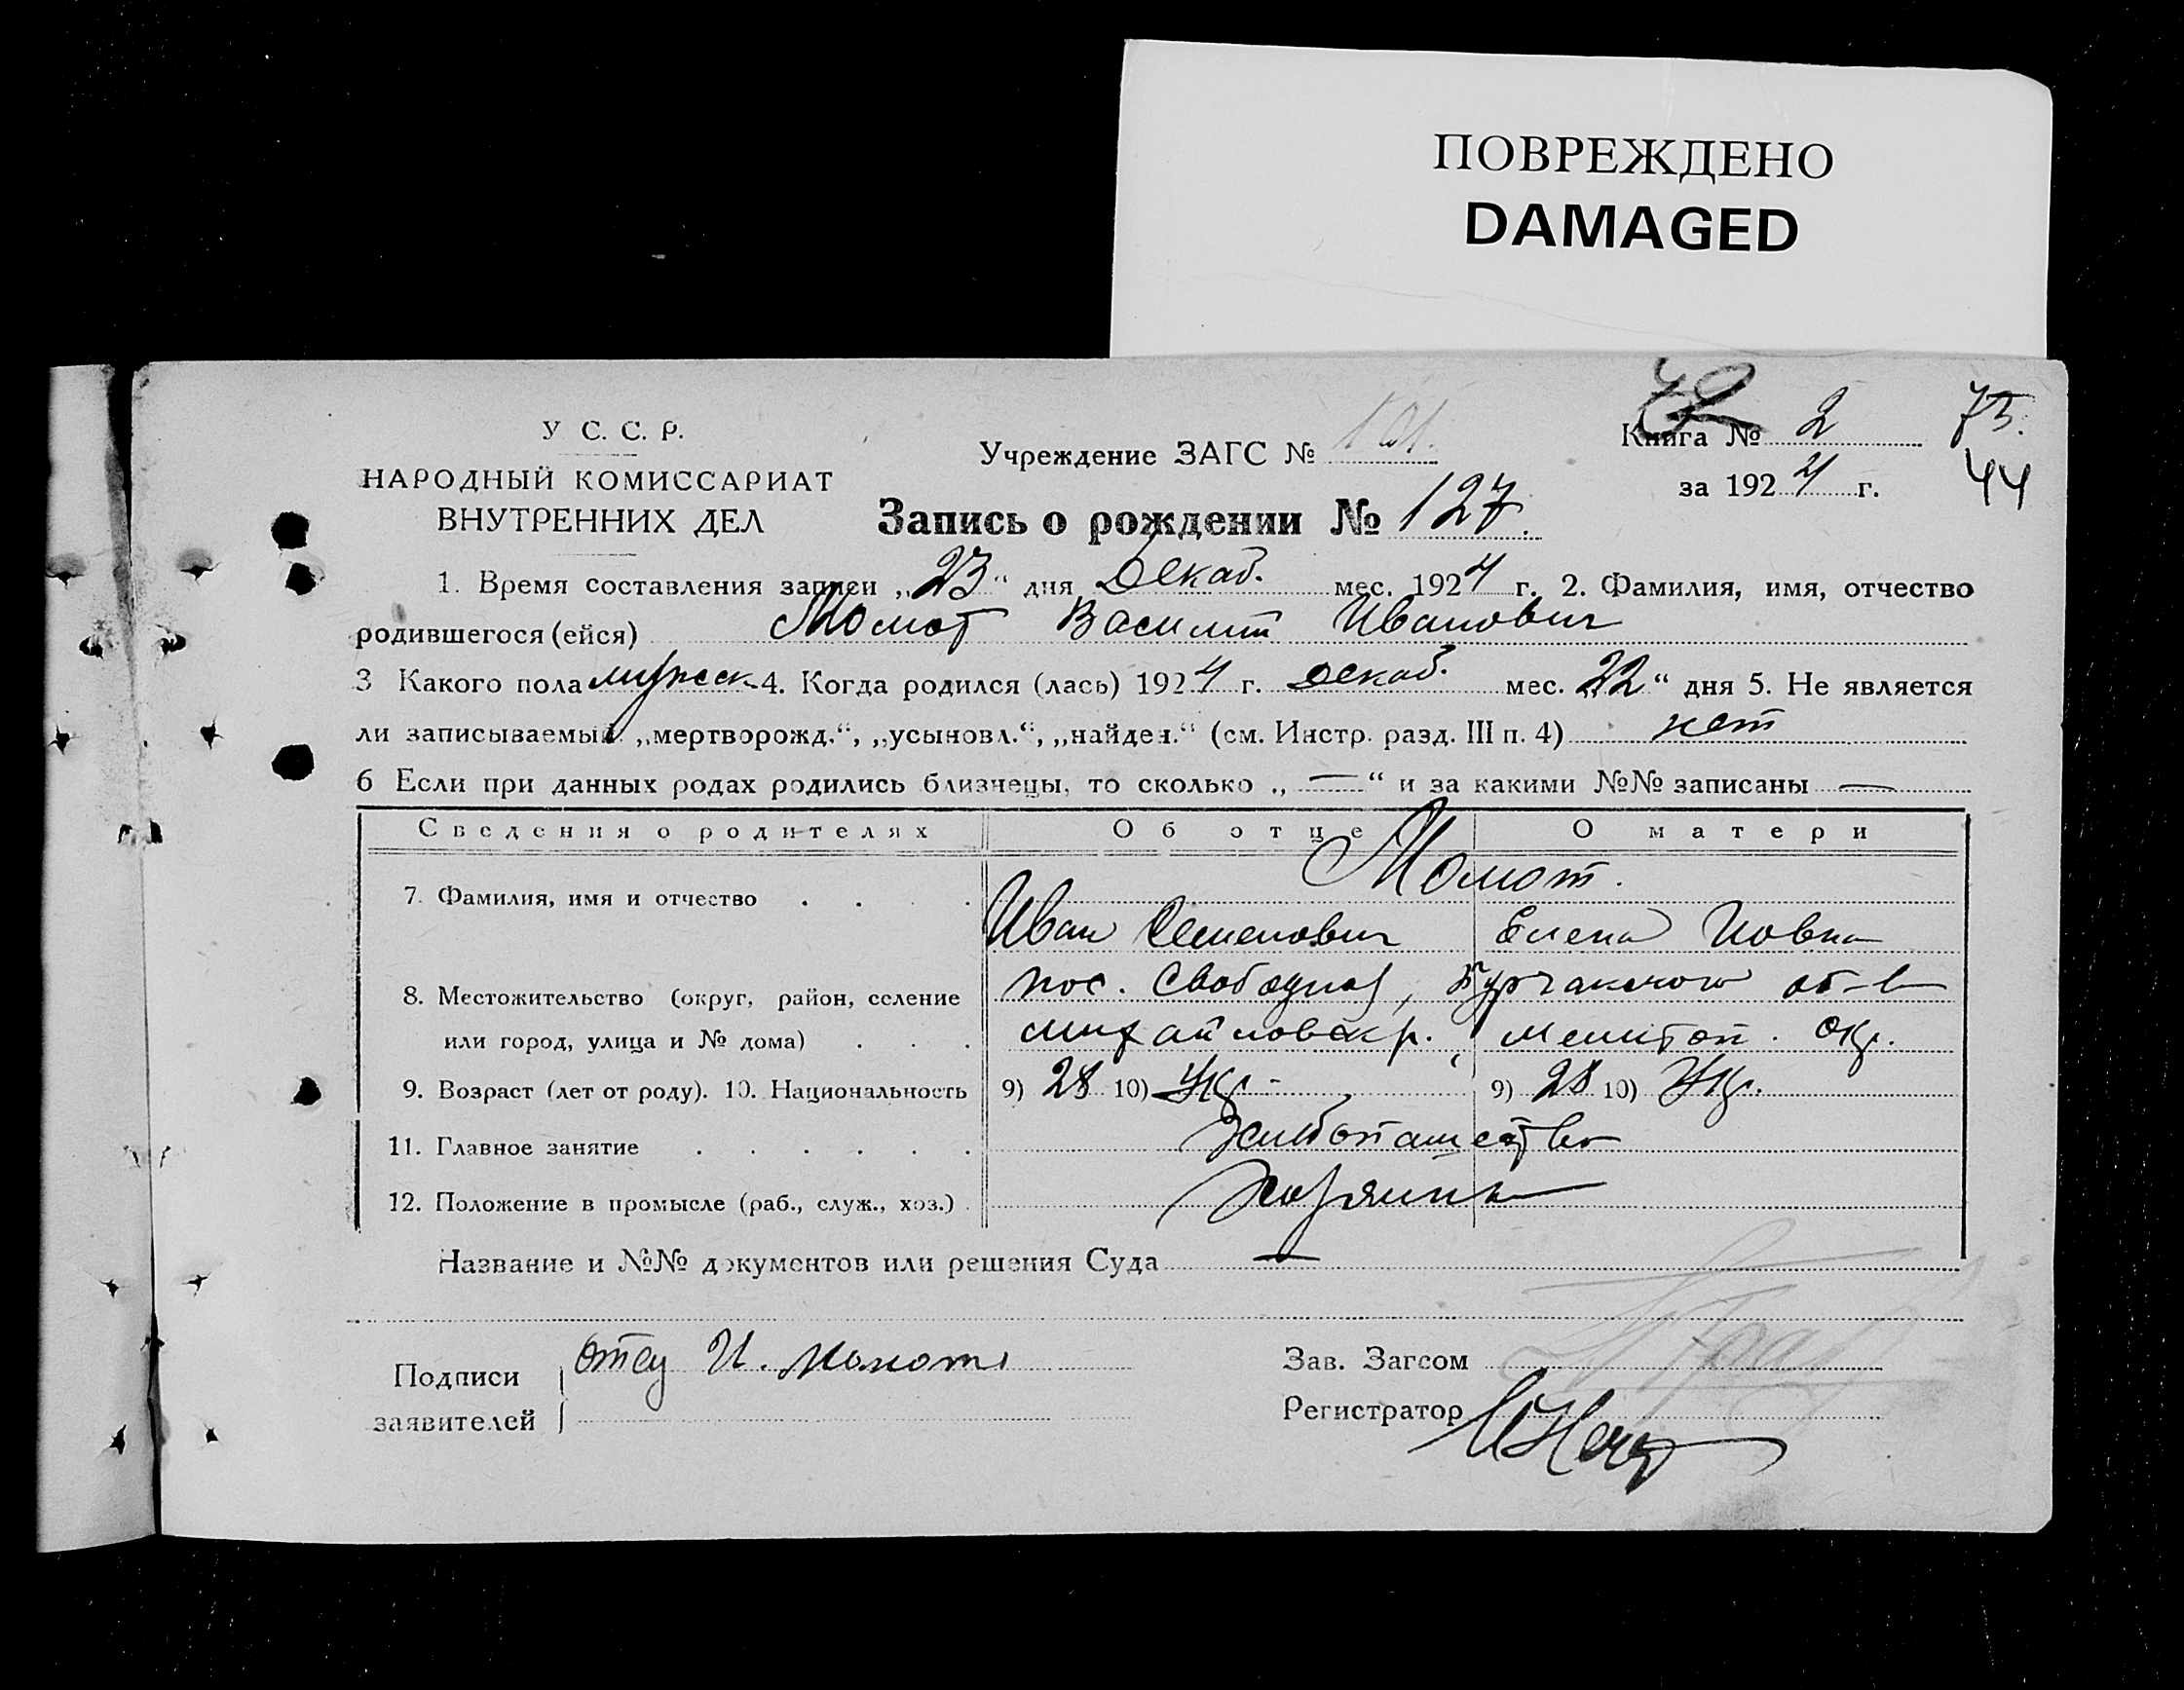 ПОВРЕЖДЕНО
DAMAGED
У С. С. Р.
НАРОДНЫЙ КОМИССАРИАТ
ВНУТРЕННИХ ДЕЛ
Учреждение ЗАГС № 101.
Книга № 2
75.
за 1924 г.
44
Запись о рождении № 127.
1. Время составления записи „23" дня Декаб. мес. 1924 г. 2. Фамилия, имя, отчество
родившегося (ейся) Момот Василий Иванович
3 Какого пола мужск 4. Когда родился (лась) 1924 г. декаб. мес. „22" дня 5. Не является
ли записываемый „мертворожд.", „усыновл.", „найден." (см. Инстр. разд. III п. 4) нет
6 Если при данных родах родились близнецы, то сколько „—" и за какими №№ записаны —
Сведения о родителях Об отце О матери
Момот.
7. Фамилия, имя и отчество . . . .
Иван Семенович Елена Иовна
8. Местожительство (округ, район, селение пос. Свободная, Бурчакского об-в
или город, улица и № дома) . . . михайловск р. мелитоп. окр.
9. Возраст (лет от роду). 10. Национальность 9) 28 10) Укр. 9) 28 10) Укр.
11. Главное занятие . . . . . .
12. Положение в промысле (раб., служ., хоз.) . Хозяин
Название и №№ документов или решения Суда —
Подписи
заявителей
отец И. Момот
Зав. Загсом
Регистратор